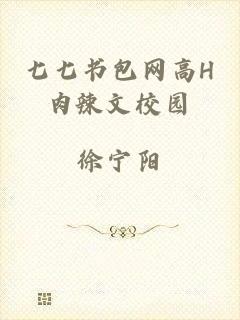 七七书包网高H
肉辣文校园
徐宁阳